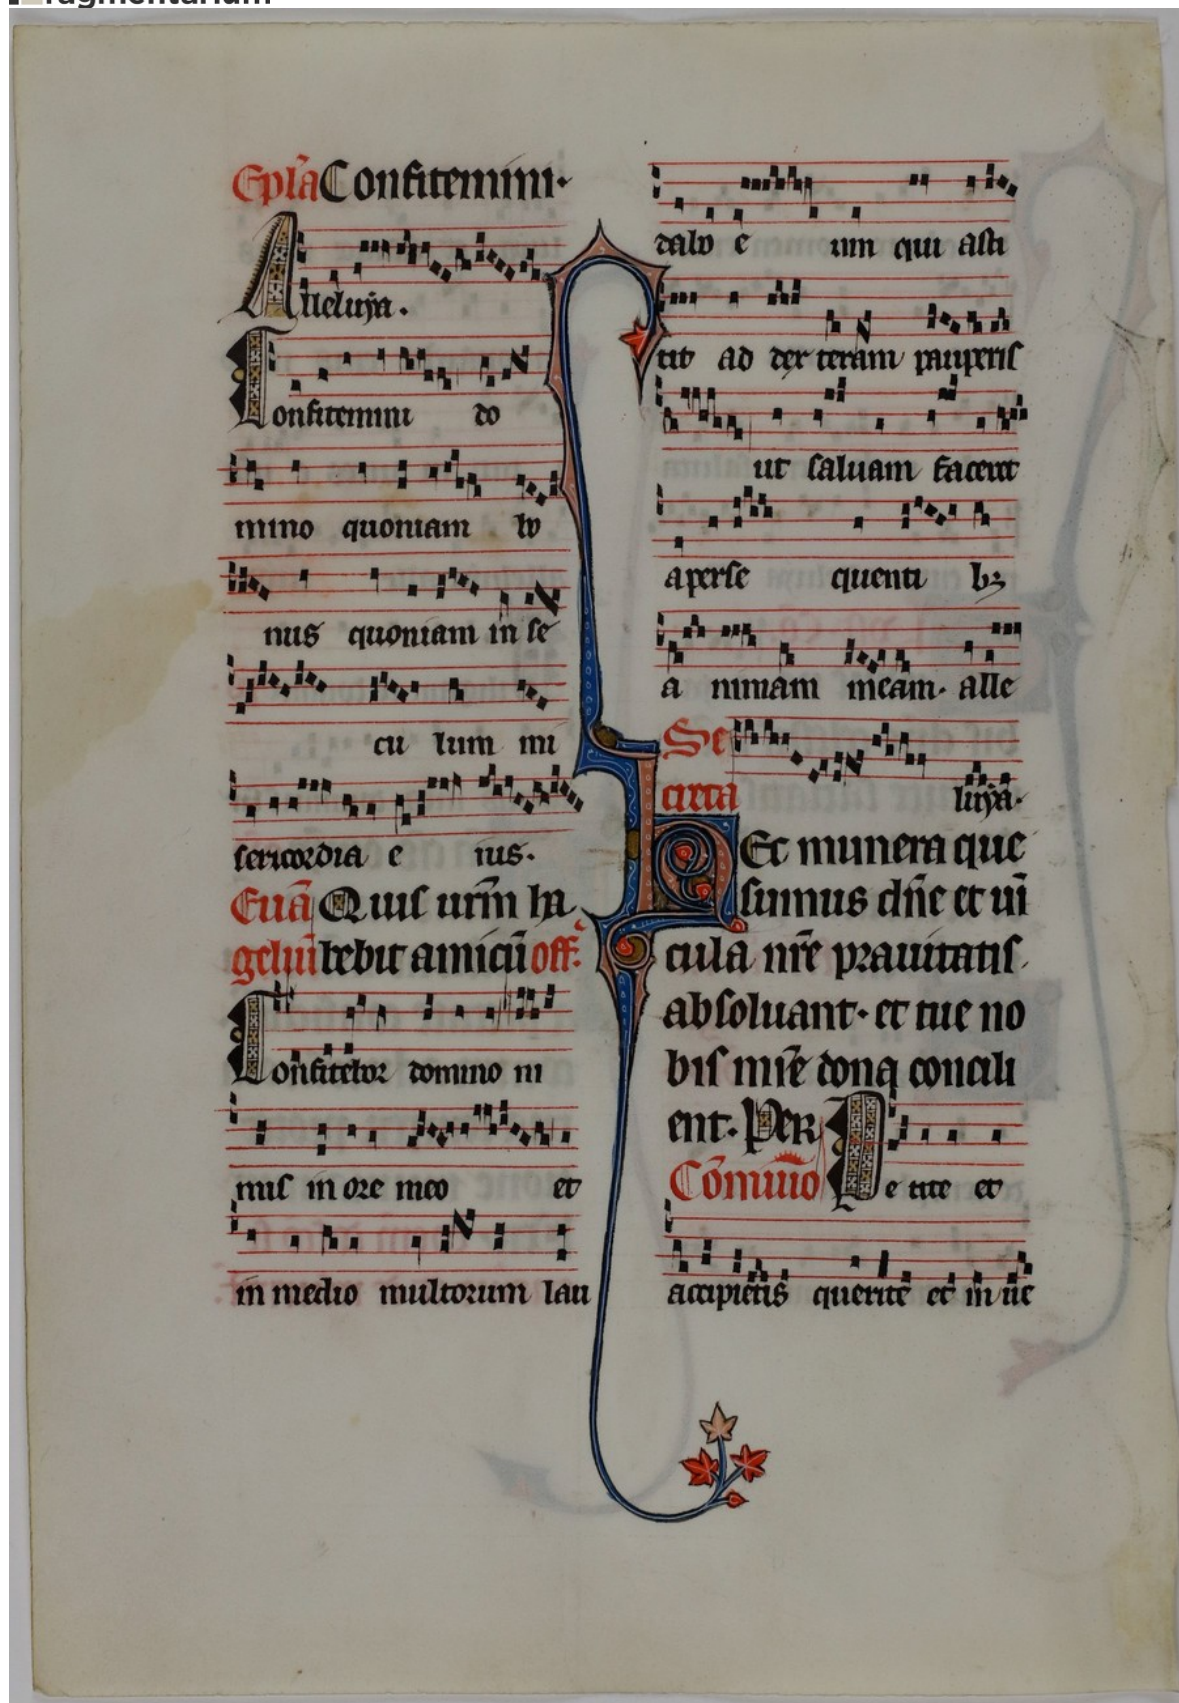 Fragmentarium
Epl̄a Confitemini·
Alleluya.
Confitemini do
mino quoniam bo
nus quoniam in se
cu lum mi
sericordia e ius.
Euā Quis ur̄m ha
geliū bebit amicū off.
Confitebor domino ni
mis in ore meo et
in medio multorum lau
dabo e um qui asti
tit ad dex teram pauperis
ut saluam faceret
a perse quenti bꝫ
a nimam meam. alle
Se
creta luya.
Hec munera que
sumus dn̄e et ui
cula nr̄e prauitatis
absoluant. et tue no
bis mīe dona concili
ent. Per Pe tite et
Cōmunio
accipietis querite et in ue